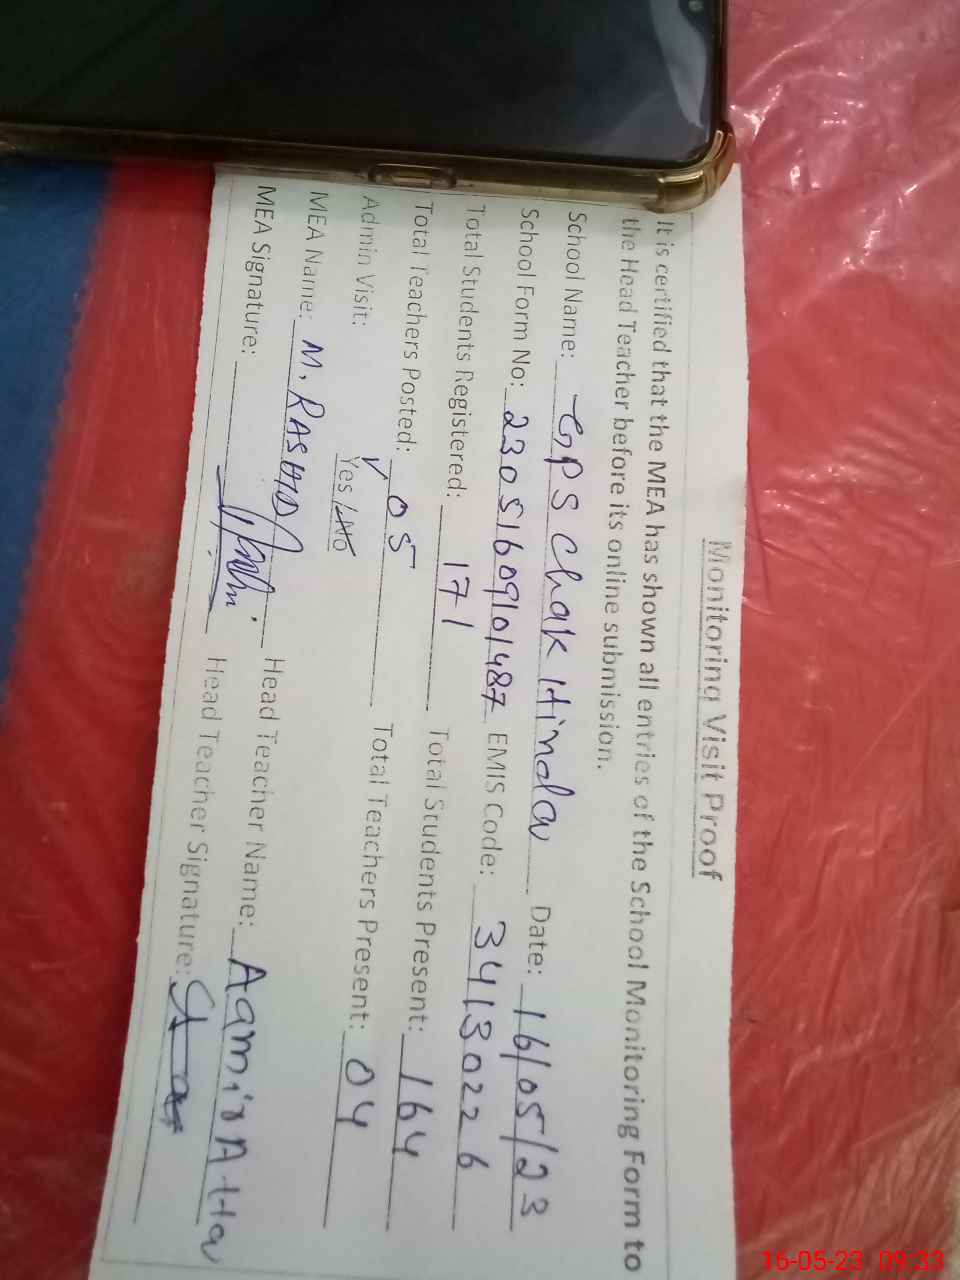 Monitoring Visit Proof
It is certified that the MEA has shown all entries of the School Monitoring Form to
the Head Teacher before its online submission.
School Name: GPS Chak Hindu Date: 16/05/23
School Form No: 23051609101487 EMIS Code: 34130226
Total Students Registered: 171 Total Students Present: 164
Total Teachers Posted: 05 Total Teachers Present: 04
Admin Visit: ✓ Yes / No
MEA Name: M. RASHID Head Teacher Name: Aamir Atta
MEA Signature: Head Teacher Signature:
16-05-23 09:33